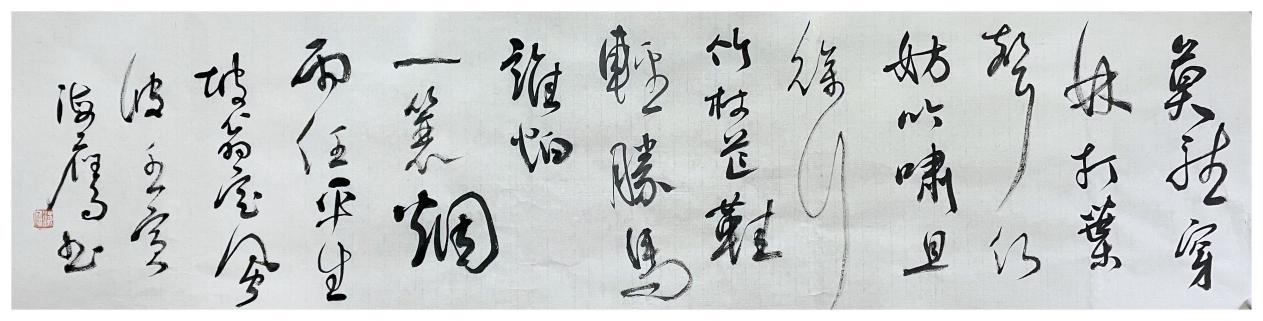 莫聽穿
林打葉
聲何
妨吟嘯且
徐行
竹杖芒鞋
輕勝馬
誰怕
一蓑烟
雨任平生
坡翁定風
波壬寅
海鷹书